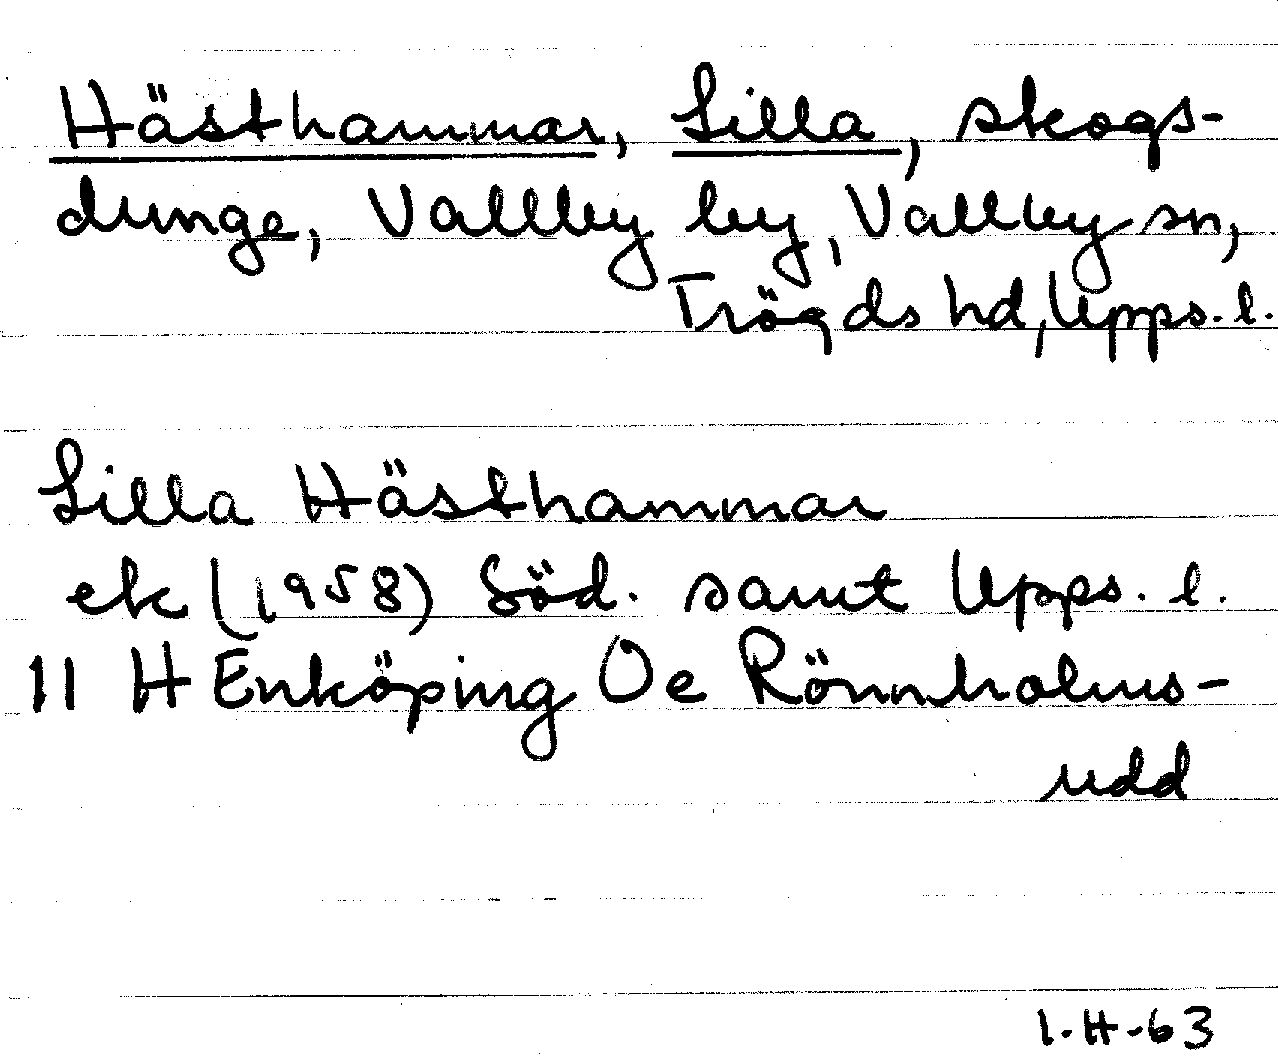 Hästhammar, Lilla, skogs-
dunge, Vallby by, Vallby sn,
Trögds hd, Upps. l.
Lilla Hästhammar
ek (1958) Söd. samt Upps. l.
11 H Enköping Öe Rönnholms-
udd
1.H.-63